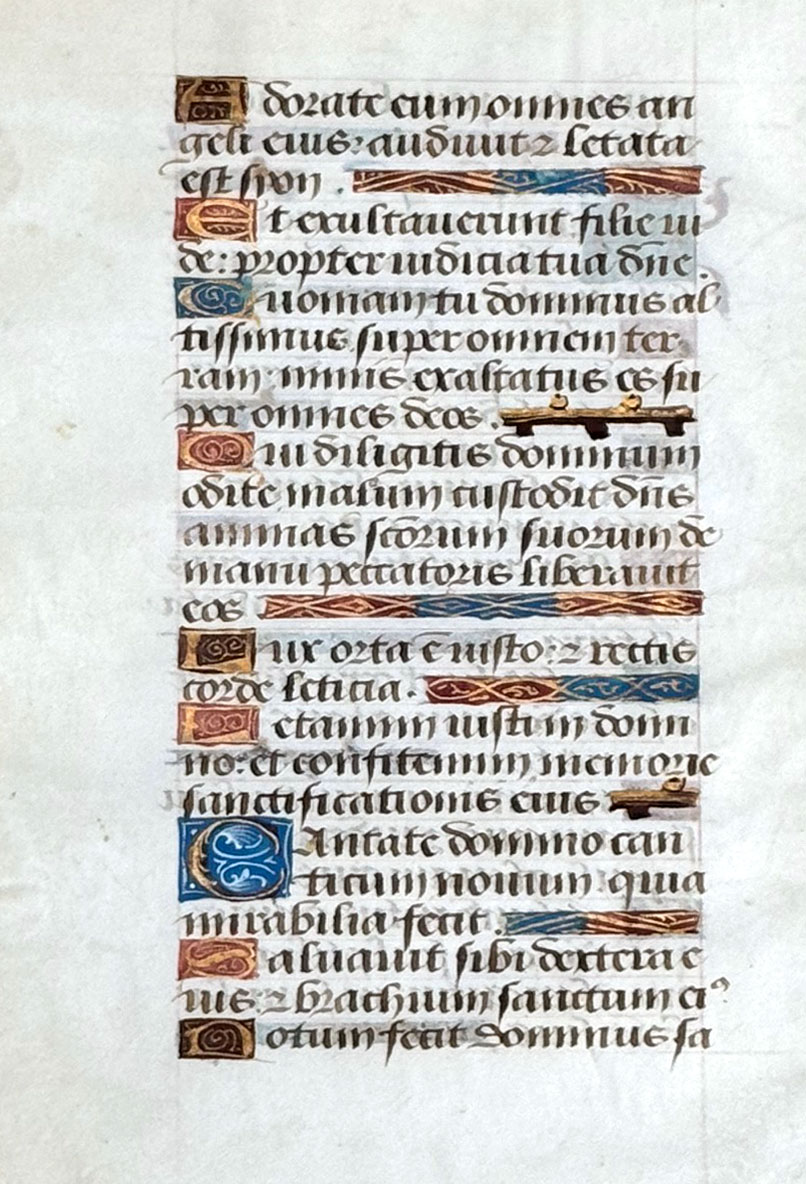 Adorate eum omnes an
geli eius: audiuit ⁊ letata
est syon .
Et exultauerunt filie iu
de: propter iudicia tua dn̄e.
Quoniam tu dominus al
tissimus super omnem ter
ram: nimis exaltatus es su
per omnes deos .
Qui diligitis dominum
odite malum custodit dn̄s
animas sc̄orum suorum de
manu peccatoris liberauit
eos
Lux orta ē iusto: ⁊ rectis
corde leticia .
Letamini iusti in domi
no: et confitemini memorie
sanctificationis eius .
Cantate domino can
ticum nouum: quia
mirabilia fecit .
Saluauit sibi dextera e
ius: ⁊ brachium sanctum eiꝰ
Notum fecit dominus sa